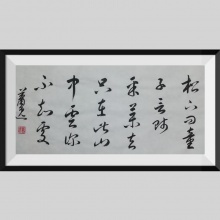 松下問童
子言師
采藥去
只在此山
中雲深
不知處